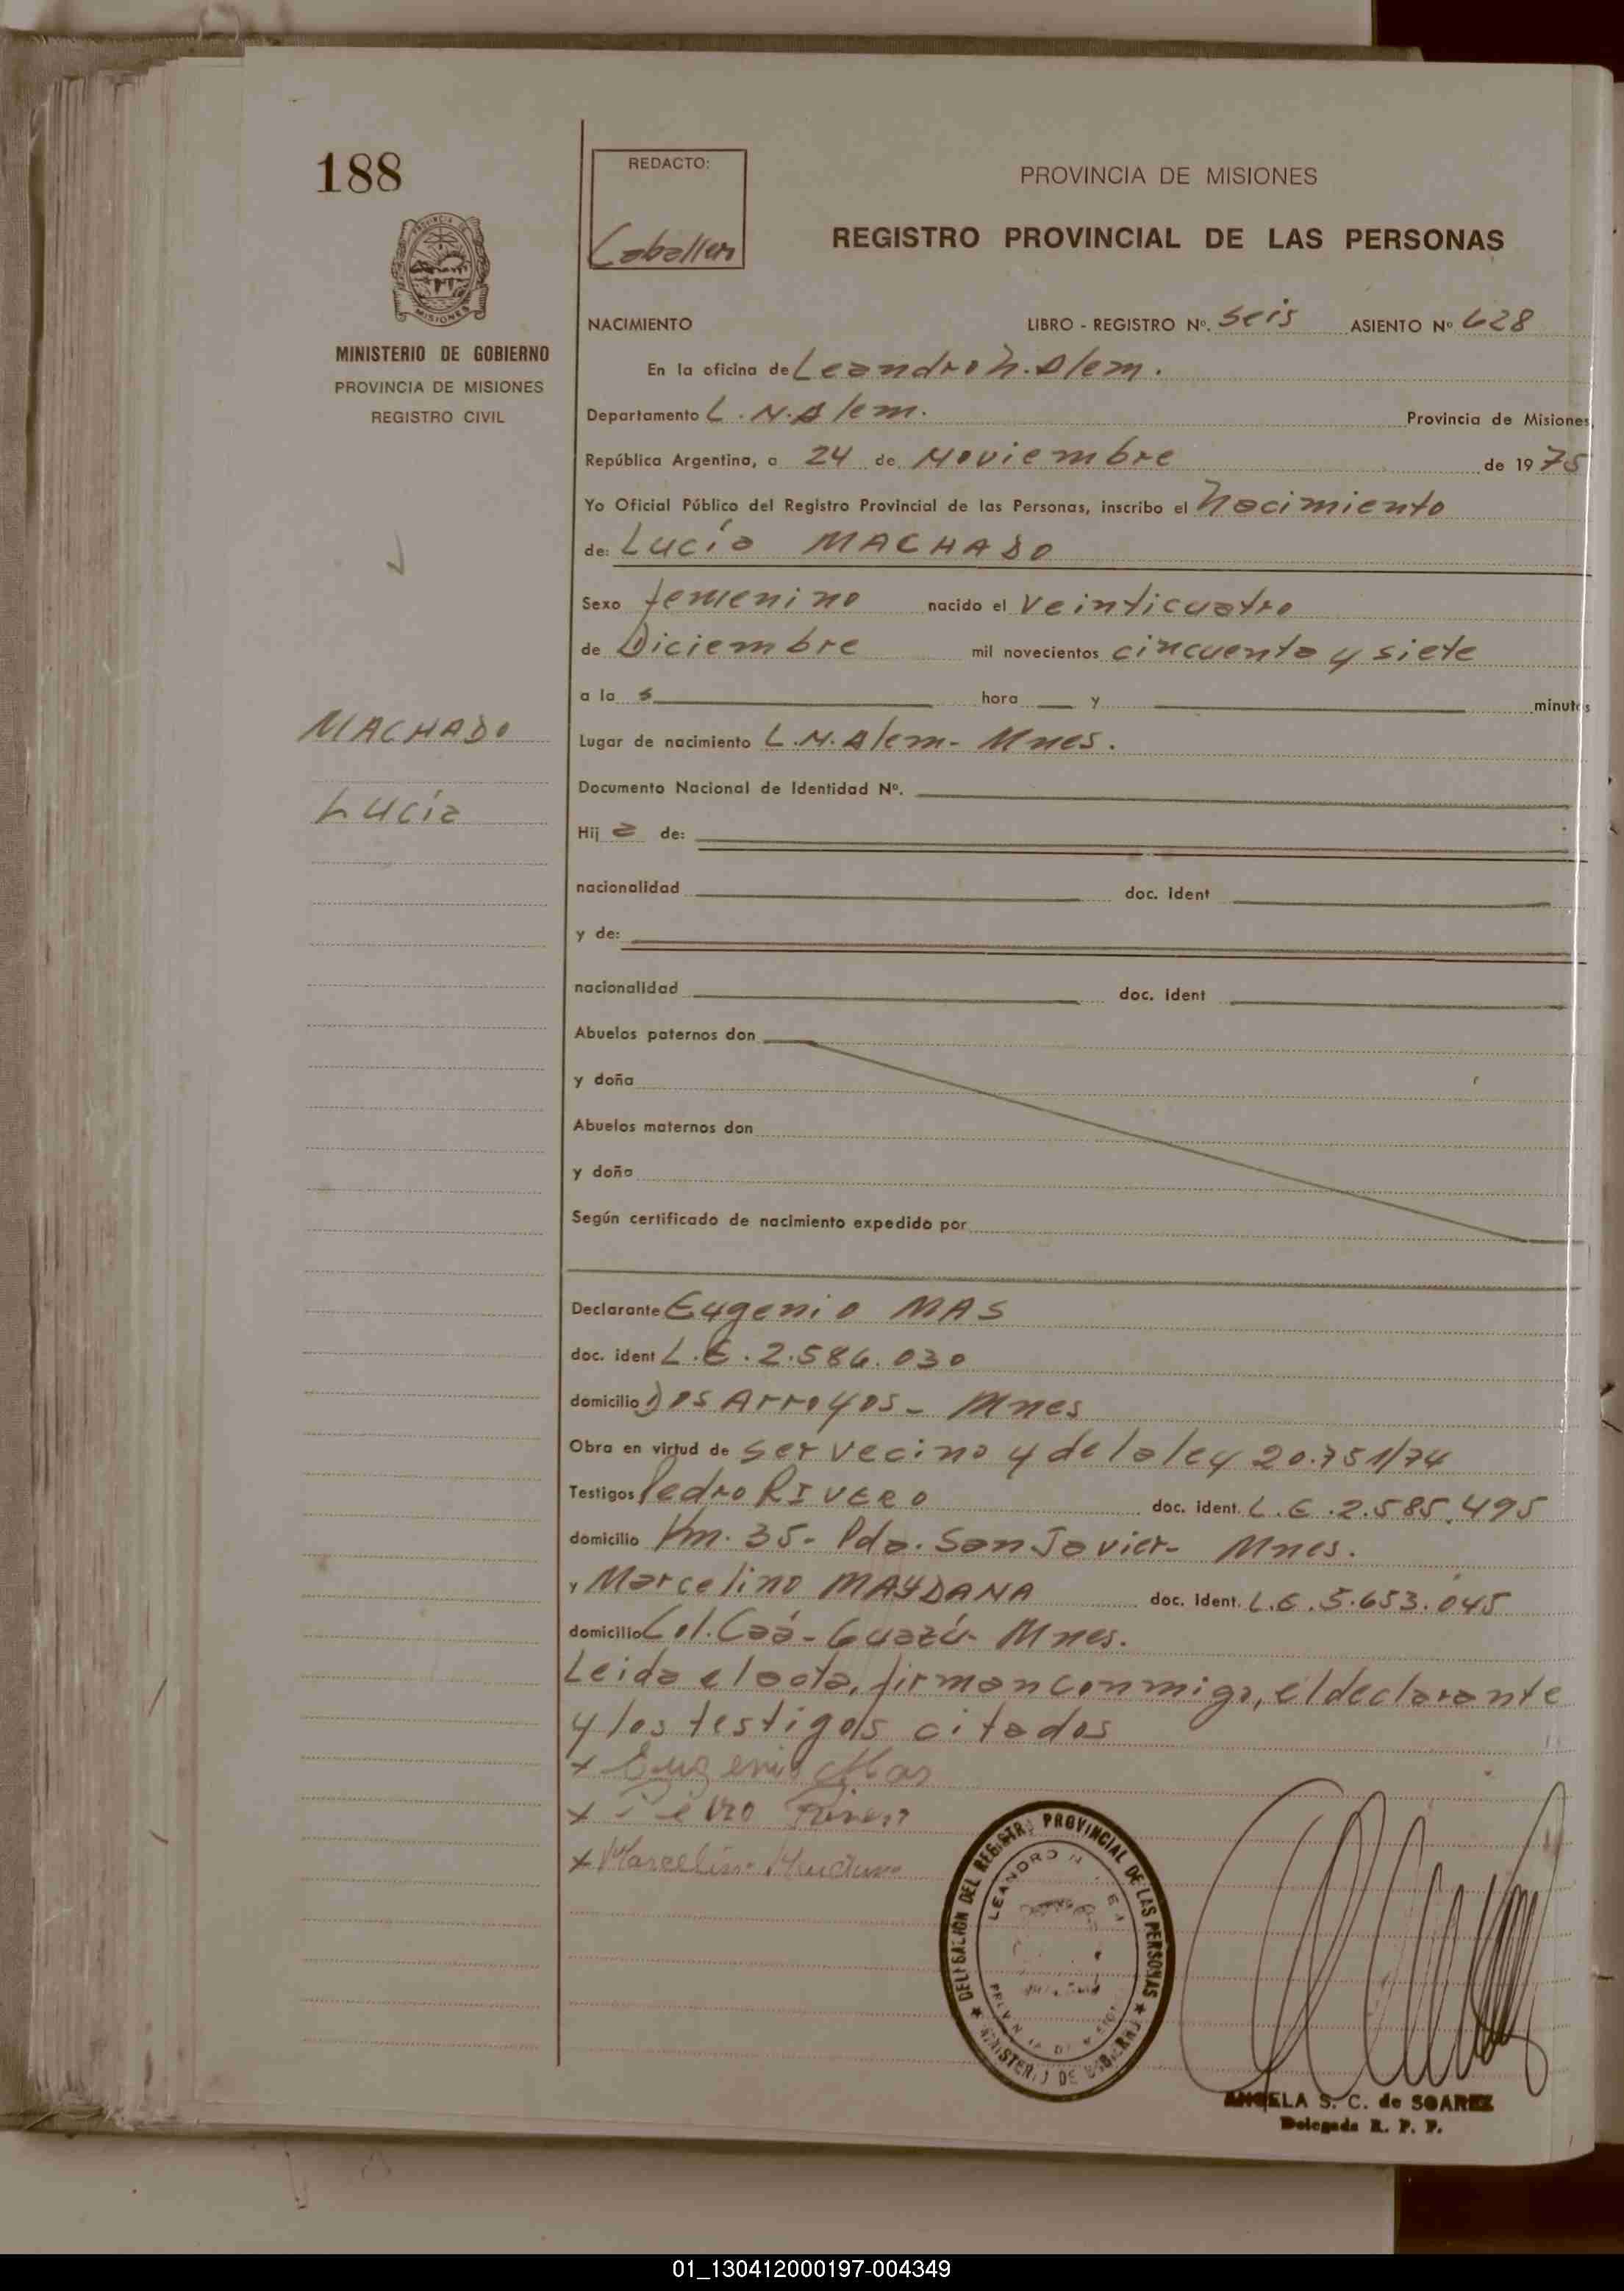 188
REDACTO:
Caballero
PROVINCIA DE MISIONES
REGISTRO PROVINCIAL DE LAS PERSONAS
PROVINCIA DE
MISIONES
MINISTERIO DE GOBIERNO
PROVINCIA DE MISIONES
REGISTRO CIVIL
NACIMIENTO LIBRO - REGISTRO Nº. Seis ASIENTO Nº 628
En la oficina de Leandro N. Alem.
Departamento L.N.Alem. Provincia de Misiones,
República Argentina, a 24 de Noviembre de 1975
Yo Oficial Público del Registro Provincial de las Personas, inscribo el Nacimiento
de: Lucía MACHADO
Sexo femenino nacido el veinticuatro
de Diciembre mil novecientos cincuenta y siete
a la s hora y minutos
MACHADO
Lucía
Lugar de nacimiento L.N.Alem- Mnes.
Documento Nacional de Identidad Nº.
Hij a de:
nacionalidad doc. ident
y de:
nacionalidad doc. ident
Abuelos paternos don
y doña
Abuelos maternos don
y doña
Según certificado de nacimiento expedido por
Declarante Eugenio MAS
doc. ident L.E.2.586.030
domicilio Dos Arroyos- Mnes
Obra en virtud de ser vecino y de la ley 20.751/74
Testigos Pedro RIVERO doc. ident. L.E.2.585.495
domicilio Km. 35- Pda. San Javier- Mnes.
y Marcelino MAYDANA doc. ident. L.E.5.653.045
domicilio Col. Caá-Guazú- Mnes.
Leida el acta, firman conmigo, el declarante
y los testigos citados
x Eugenio Mas
x
x Marcelino
DELEGACION DEL REGISTRO PROVINCIAL DE LAS PERSONAS
MINISTERIO DE GOBIERNO
LEANDRO N.
ANGELA S. C. de SOAREZ
Delegada R. P. P.
01_130412000197-004349